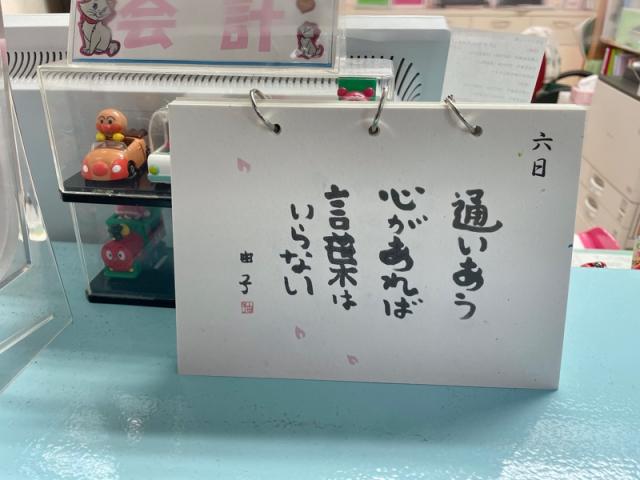 会計
六日
通いあう
心があれば
言葉は
いらない
由子